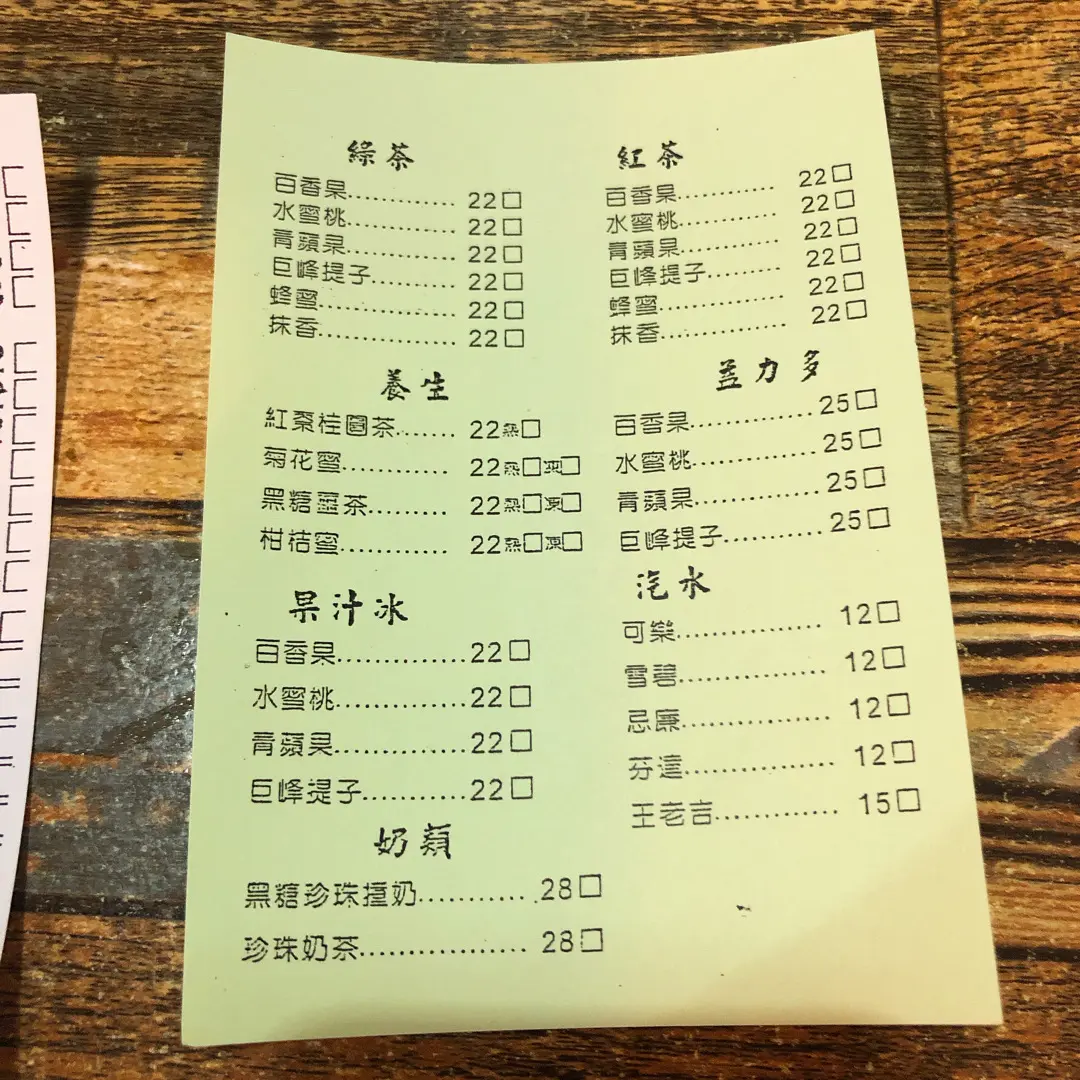 綠茶
百香果............... 22□
水蜜桃............... 22□
青蘋果............... 22□
巨峰提子............ 22□
蜂蜜................... 22□
抹香................... 22□
養生
紅棗桂圓茶....... 22熱□
菊花蜜.............. 22熱□凍□
黑糖薑茶.......... 22熱□凍□
柑桔蜜.............. 22熱□凍□
果汁冰
百香果..............22□
水蜜桃..............22□
青蘋果..............22□
巨峰提子...........22□
奶類
黑糖珍珠撞奶........... 28□
珍珠奶茶................. 28□
紅茶
百香果............ 22□
水蜜桃............ 22□
青蘋果............ 22□
巨峰提子......... 22□
蜂蜜................ 22□
抹香................ 22□
益力多
百香果.............25□
水蜜桃.............25□
青蘋果.............25□
巨峰提子..........25□
汽水
可樂................ 12□
雪碧................ 12□
忌廉................ 12□
芬達................ 12□
王老吉............. 15□